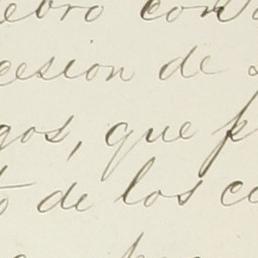 ebro con
cesion de
gos, que p
to de los co